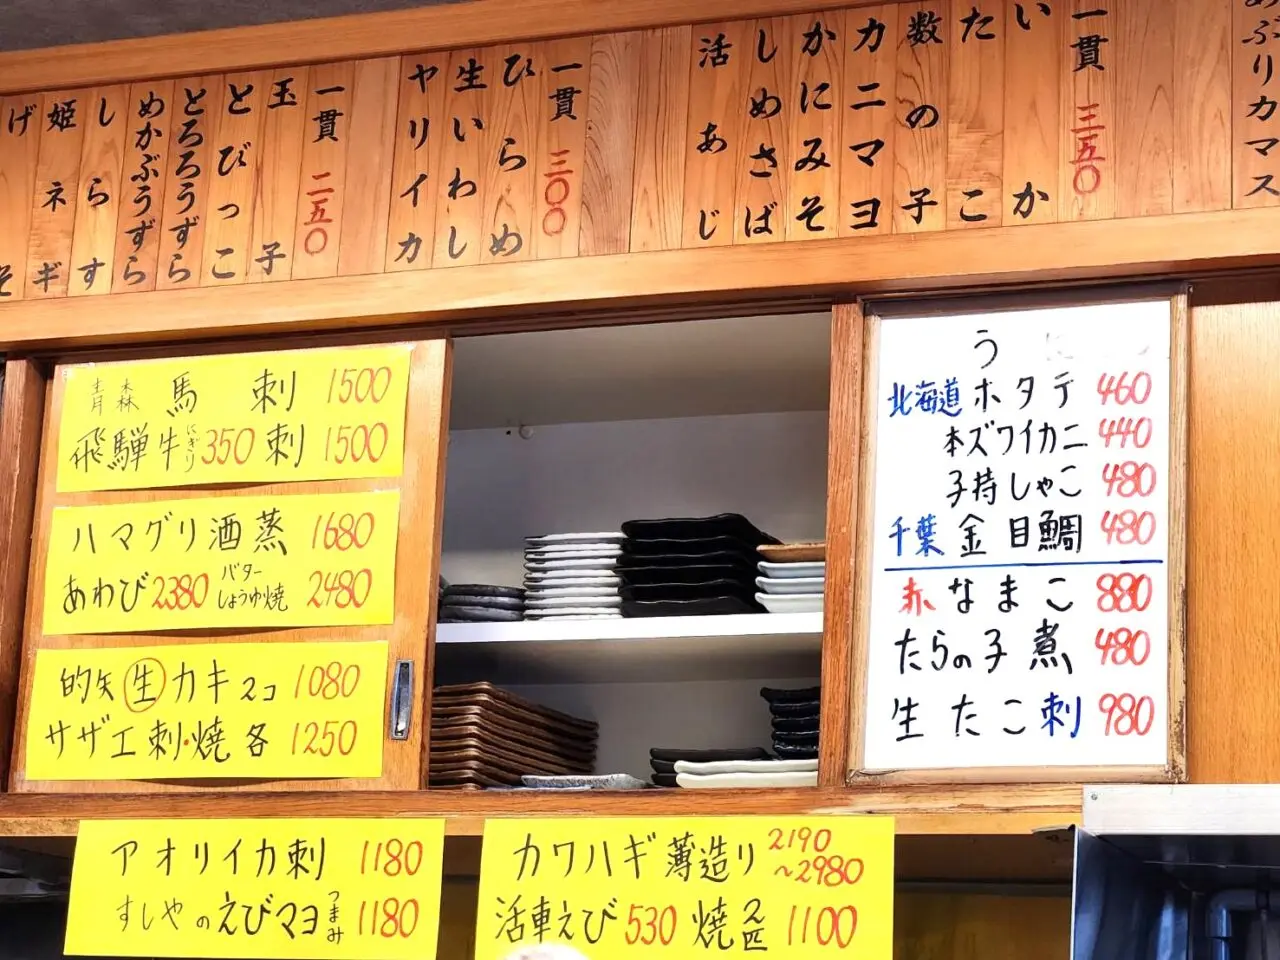 めぶりカマス
一貫 三五〇
いか
たこ
数の子
カニマヨ
かにみそ
しめさば
活あじ
一貫 三〇〇
ひらめ
生いわし
ヤリイカ
一貫 二五〇
玉子
とびっこ
とろろうずら
めかぶうずら
しらす
姫ネギ
げそ
青森 馬刺 1500
飛騨牛 にぎり 350 刺 1500
ハマグリ酒蒸 1680
あわび 2380 バターしょうゆ焼 2480
的矢 生 カキ 2コ 1080
サザエ刺・焼 各 1250
う
北海道 ホタテ 460
本ズワイカニ 440
子持しゃこ 480
千葉 金目鯛 480
赤なまこ 880
たらの子煮 480
生たこ刺 980
アオリイカ刺 1180
すしやのえびマヨ つまみ 1180
カワハギ薄造り 2190～2980
活車えび 530 焼 2匹 1100